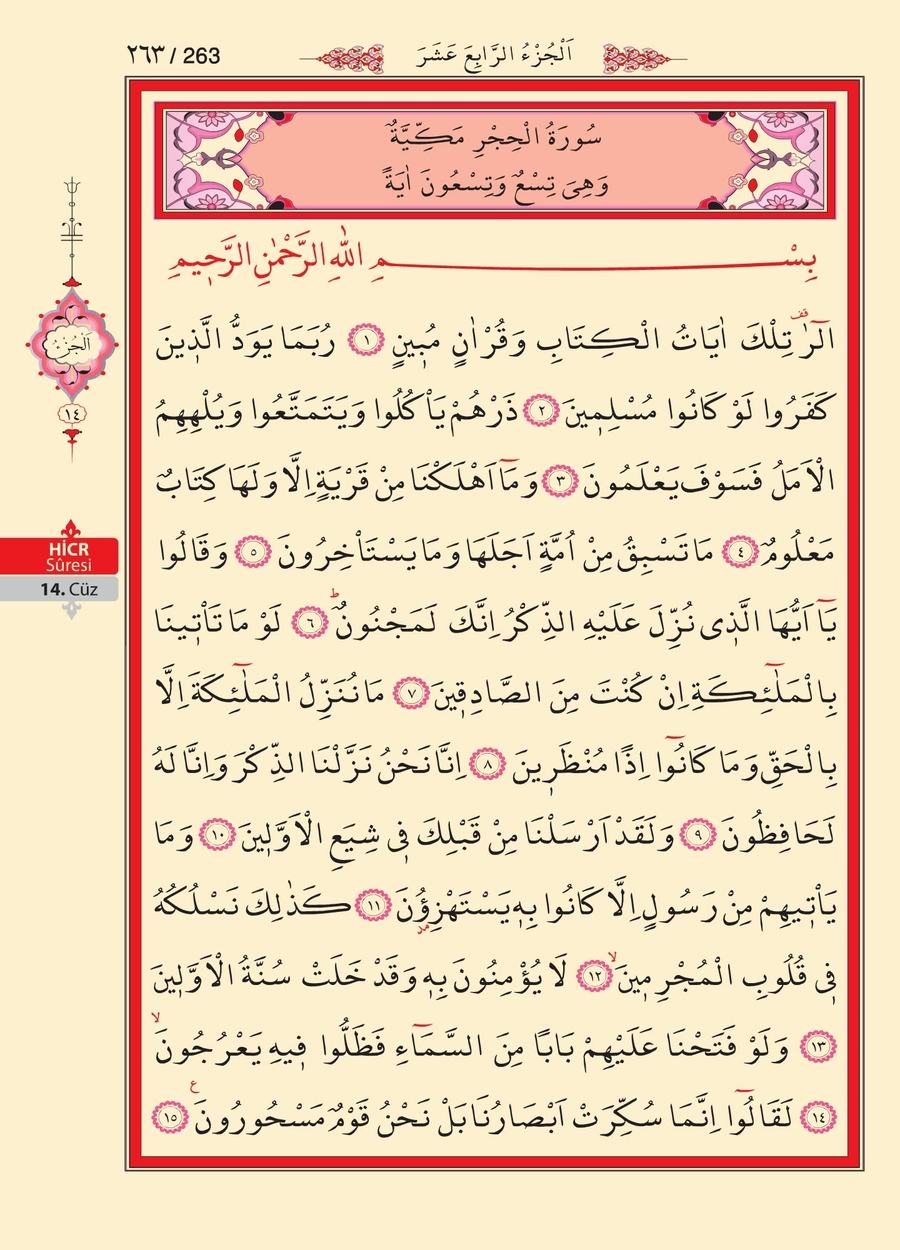 ٢٦٣ / 263
اَلْجُزْءُ الرَّابِعَ عَشَرَ
سُورَةُ الْحِجْرِ مَكِّيَّةٌ
وَهِىَ تِسْعٌ وَتِسْعُونَ اٰيَةً
بِسْمِ اللّٰهِ الرَّحْمٰنِ الرَّحٖيمِ
الٓرٰ قف تِلْكَ اٰيَاتُ الْكِتَابِ وَقُرْاٰنٍ مُبٖينٍ ﴿١﴾ رُبَمَا يَوَدُّ الَّذٖينَ
كَفَرُوا لَوْ كَانُوا مُسْلِمٖينَ ﴿٢﴾ ذَرْهُمْ يَاْكُلُوا وَيَتَمَتَّعُوا وَيُلْهِهِمُ
الْاَمَلُ فَسَوْفَ يَعْلَمُونَ ﴿٣﴾ وَمَٓا اَهْلَكْنَا مِنْ قَرْيَةٍ اِلَّا وَلَهَا كِتَابٌ
مَعْلُومٌ ﴿٤﴾ مَا تَسْبِقُ مِنْ اُمَّةٍ اَجَلَهَا وَمَا يَسْتَاْخِرُونَ ﴿٥﴾ وَقَالُوا
يَٓا اَيُّهَا الَّذٖى نُزِّلَ عَلَيْهِ الذِّكْرُ اِنَّكَ لَمَجْنُونٌ ط ﴿٦﴾ لَوْ مَا تَاْتٖينَا
بِالْمَلٰٓئِكَةِ اِنْ كُنْتَ مِنَ الصَّادِقٖينَ ﴿٧﴾ مَا نُنَزِّلُ الْمَلٰٓئِكَةَ اِلَّا
بِالْحَقِّ وَمَا كَانُٓوا اِذًا مُنْظَرٖينَ ﴿٨﴾ اِنَّا نَحْنُ نَزَّلْنَا الذِّكْرَ وَاِنَّا لَهُ
لَحَافِظُونَ ﴿٩﴾ وَلَقَدْ اَرْسَلْنَا مِنْ قَبْلِكَ فٖى شِيَعِ الْاَوَّلٖينَ ﴿١٠﴾ وَمَا
يَاْتٖيهِمْ مِنْ رَسُولٍ اِلَّا كَانُوا بِهٖ يَسْتَهْزِؤُنَ ﴿١١﴾ كَذٰلِكَ نَسْلُكُهُ
فٖى قُلُوبِ الْمُجْرِمٖينَ لا ﴿١٢﴾ لَا يُؤْمِنُونَ بِهٖ وَقَدْ خَلَتْ سُنَّةُ الْاَوَّلٖينَ
﴿١٣﴾ وَلَوْ فَتَحْنَا عَلَيْهِمْ بَابًا مِنَ السَّمَٓاءِ فَظَلُّوا فٖيهِ يَعْرُجُونَ لا
﴿١٤﴾ لَقَالُٓوا اِنَّمَا سُكِّرَتْ اَبْصَارُنَا بَلْ نَحْنُ قَوْمٌ مَسْحُورُونَ ع ﴿١٥﴾
اَلْجُزْءُ
١٤
HİCR
Sûresi
14. Cüz